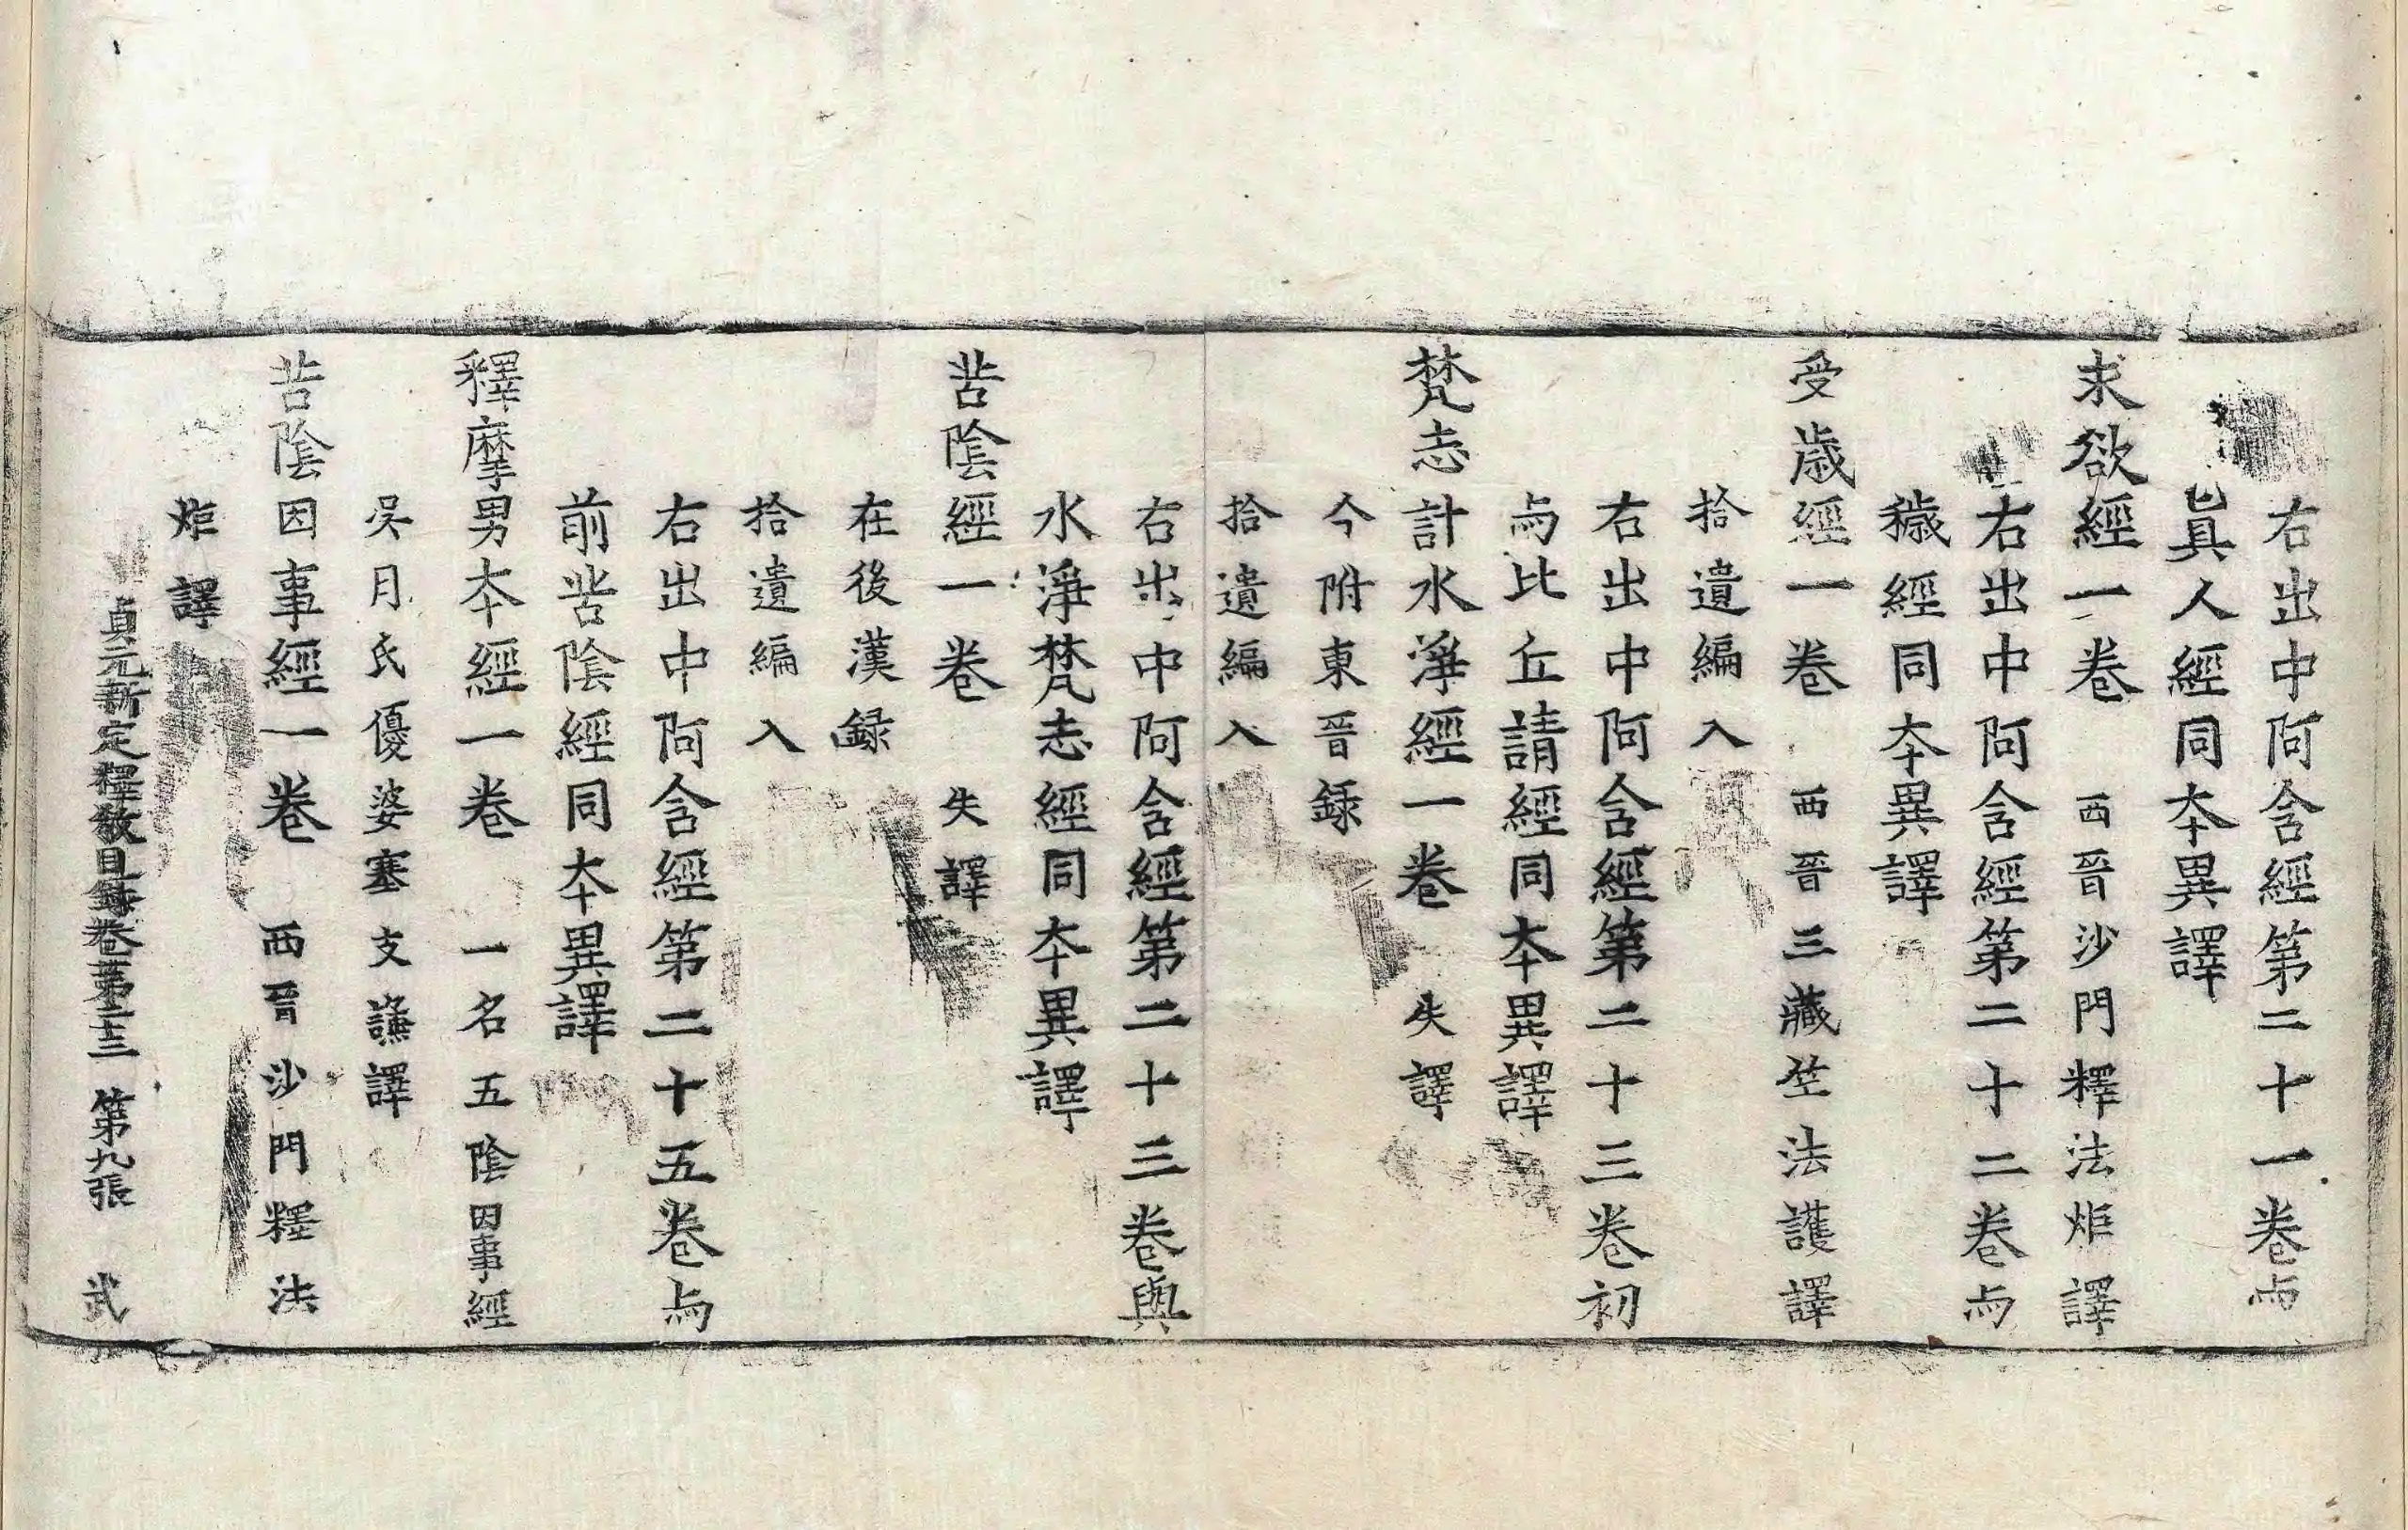 右出中阿含經第二十一卷与
真人經同夲異譯
求欲經一卷　西晉沙門釋法炬譯
右出中阿含經第二十二卷与
穢經同夲異譯
受歳經一卷　西晉三藏竺法護譯
拾遺編入
右出中阿含經第二十三卷初
与比丘請經同夲異譯
梵志計水淨經一卷　失譯
今附東晉録
拾遺編入
右出中阿含經第二十三卷與
水淨梵志經同夲異譯
苦陰經一卷　失譯
在後漢録
拾遺編入
右出中阿含經第二十五卷与
前苦陰經同夲異譯
釋摩男夲經一卷　一名五陰因事經
吳月氏優婆塞支謙譯
苦陰因事經一卷　西晉沙門釋法
炬譯
貞元新定釋教目錄卷第三十三　第九張　武